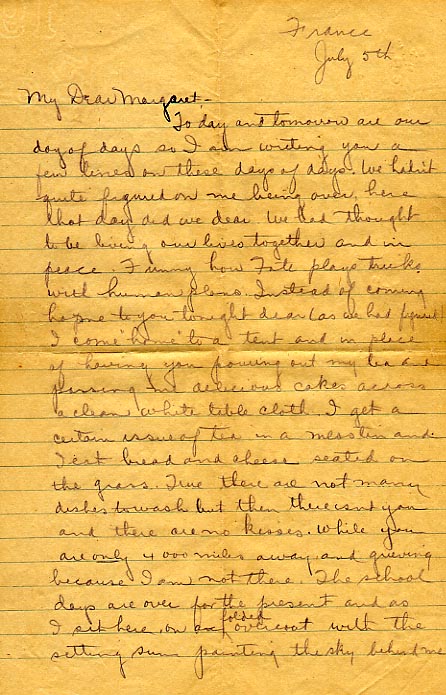 France
July 5th
My Dear Margaret,-
To day and tomorrow are our
day of days so I am writing you a
few lines on these days of days. We hadn't
quite figured on me being over here
that day did we dear. We had thought
to be living our lives together and in
peace. Funny how Fate plays tricks
with human plans. Instead of coming
home to you tonight dear (as we had figured)
I come "home" to a tent and in place
of having you pouring out my tea and
passing me delicious cakes across
a clean white table cloth. I get a
certain issue of tea in a messtin and
I eat bread and cheese seated on
the grass. True there are not many
dishes to wash but then there isnt you
and there are no kisses. While you
are only 4000 miles away and grieving
because I am not there. The school
days are over for the present and as
I sit here on a folded overcoat with the
setting sun painting the sky behind me